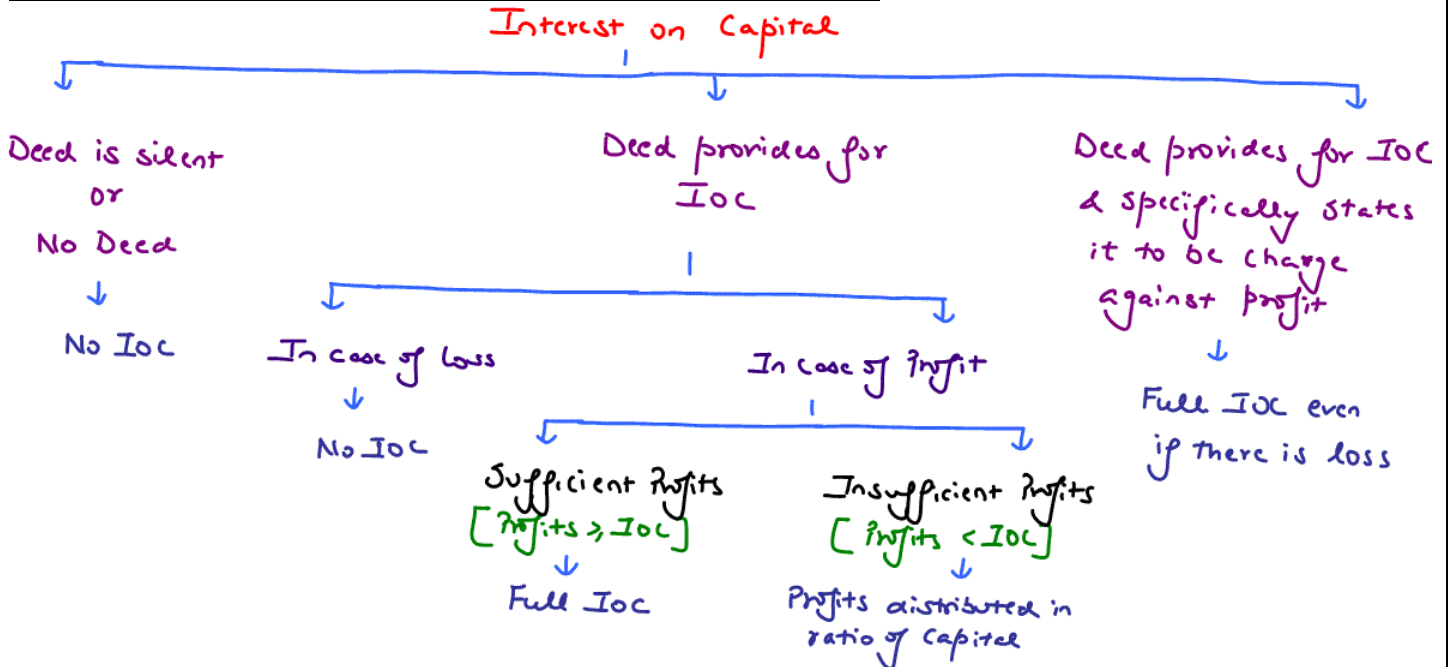 Interest on Capital
Deed is silent
or
No Deed
↓
No IOC
Deed provides for
IOC
In case of loss
↓
No IOC
In case of Profit
Sufficient Profits
[Profits ≥ IOC]
↓
Full IOC
Insufficient Profits
[Profits < IOC]
↓
Profits distributed in
ratio of Capital
Deed provides for IOC
& specifically states
it to be charge
against profit
↓
Full IOC even
if there is loss